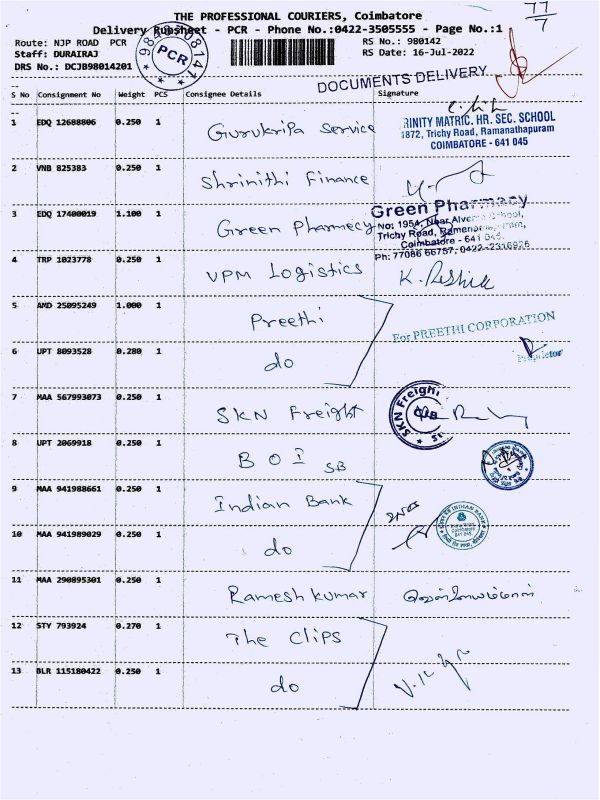 THE PROFESSIONAL COURIERS, Coimbatore
77
7
Delivery Runsheet - PCR - Phone No.:0422-3505555 - Page No.:1
Route: NJP ROAD PCR
RS No.: 980142
Staff: DURAIRAJ
RS Date: 16-Jul-2022
DRS No.: DCJB98014201
PCR
DOCUMENTS DELIVERY
S No Consignment No Weight PCS Consignee Details Signature
1 EDQ 12688806 0.250 1 Gurukripa Service
TRINITY MATRIC. HR. SEC. SCHOOL
1872, Trichy Road, Ramanathapuram
COIMBATORE - 641 045
2 VNB 825383 0.250 1 Shrinithi Finance
3 EDQ 17400019 1.100 1 Green Pharmecy
Green Pharmacy
No: 1954, Near Alvernia School,
Trichy Road, Ramanathapuram,
Coimbatore - 641 045.
Ph: 77086 66757, 0422-2316926
4 TRP 1023778 0.250 1 VPM Logistics
5 AMD 25095249 1.000 1 Preethi
For PREETHI CORPORATION
6 UPT 8093528 0.280 1 do
Proprietor
7 MAA 567993073 0.250 1 SKN Freight
SKN Freight
CJB
8 UPT 2069918 0.250 1 BOI SB
9 MAA 941988661 0.250 1 Indian Bank
INDIAN BANK
10 MAA 941989029 0.250 1 do
11 MAA 290895301 0.250 1 Ramesh kumar
12 STY 793924 0.270 1 The Clips
13 BLR 115180422 0.250 1 do